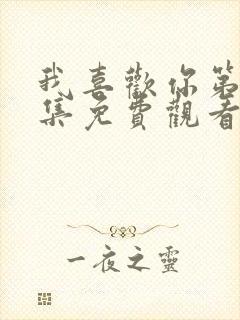 我喜歡你第
集免費觀看
一夜之靈